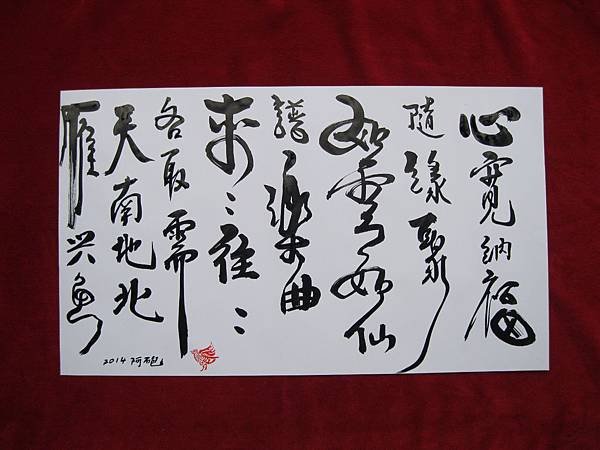 心寬納福
隨緣聚
如雲如仙
譜樂曲
來〻往〻
各取需
天南地北
雁魚
2014 阿砲